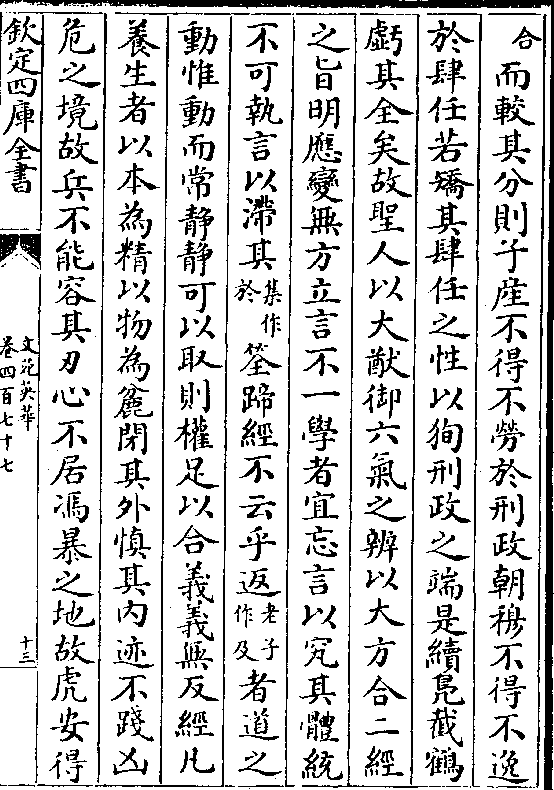 合而較其分則子産不得不勞於刑政朝穆不得不逸
於肆任若矯其肆任之性以狥刑政之端是續鳬截鶴
虧其全矣故聖人以大猷御六氣之辨以大方合二經
之旨明應變無方立言不一學者宜忘言以究其體統
不可執言以滯其集作於筌蹄經不云乎返老子作及者道之
動惟動而常静静可以取則權足以合義義無反經凡
養生者以本為精以物為麄閉其外慎其内迹不踐凶
危之境故兵不能容其刃心不居馮暴之地故虎安得
欽定四庫全書
文苑英華
卷四百七十七
十三